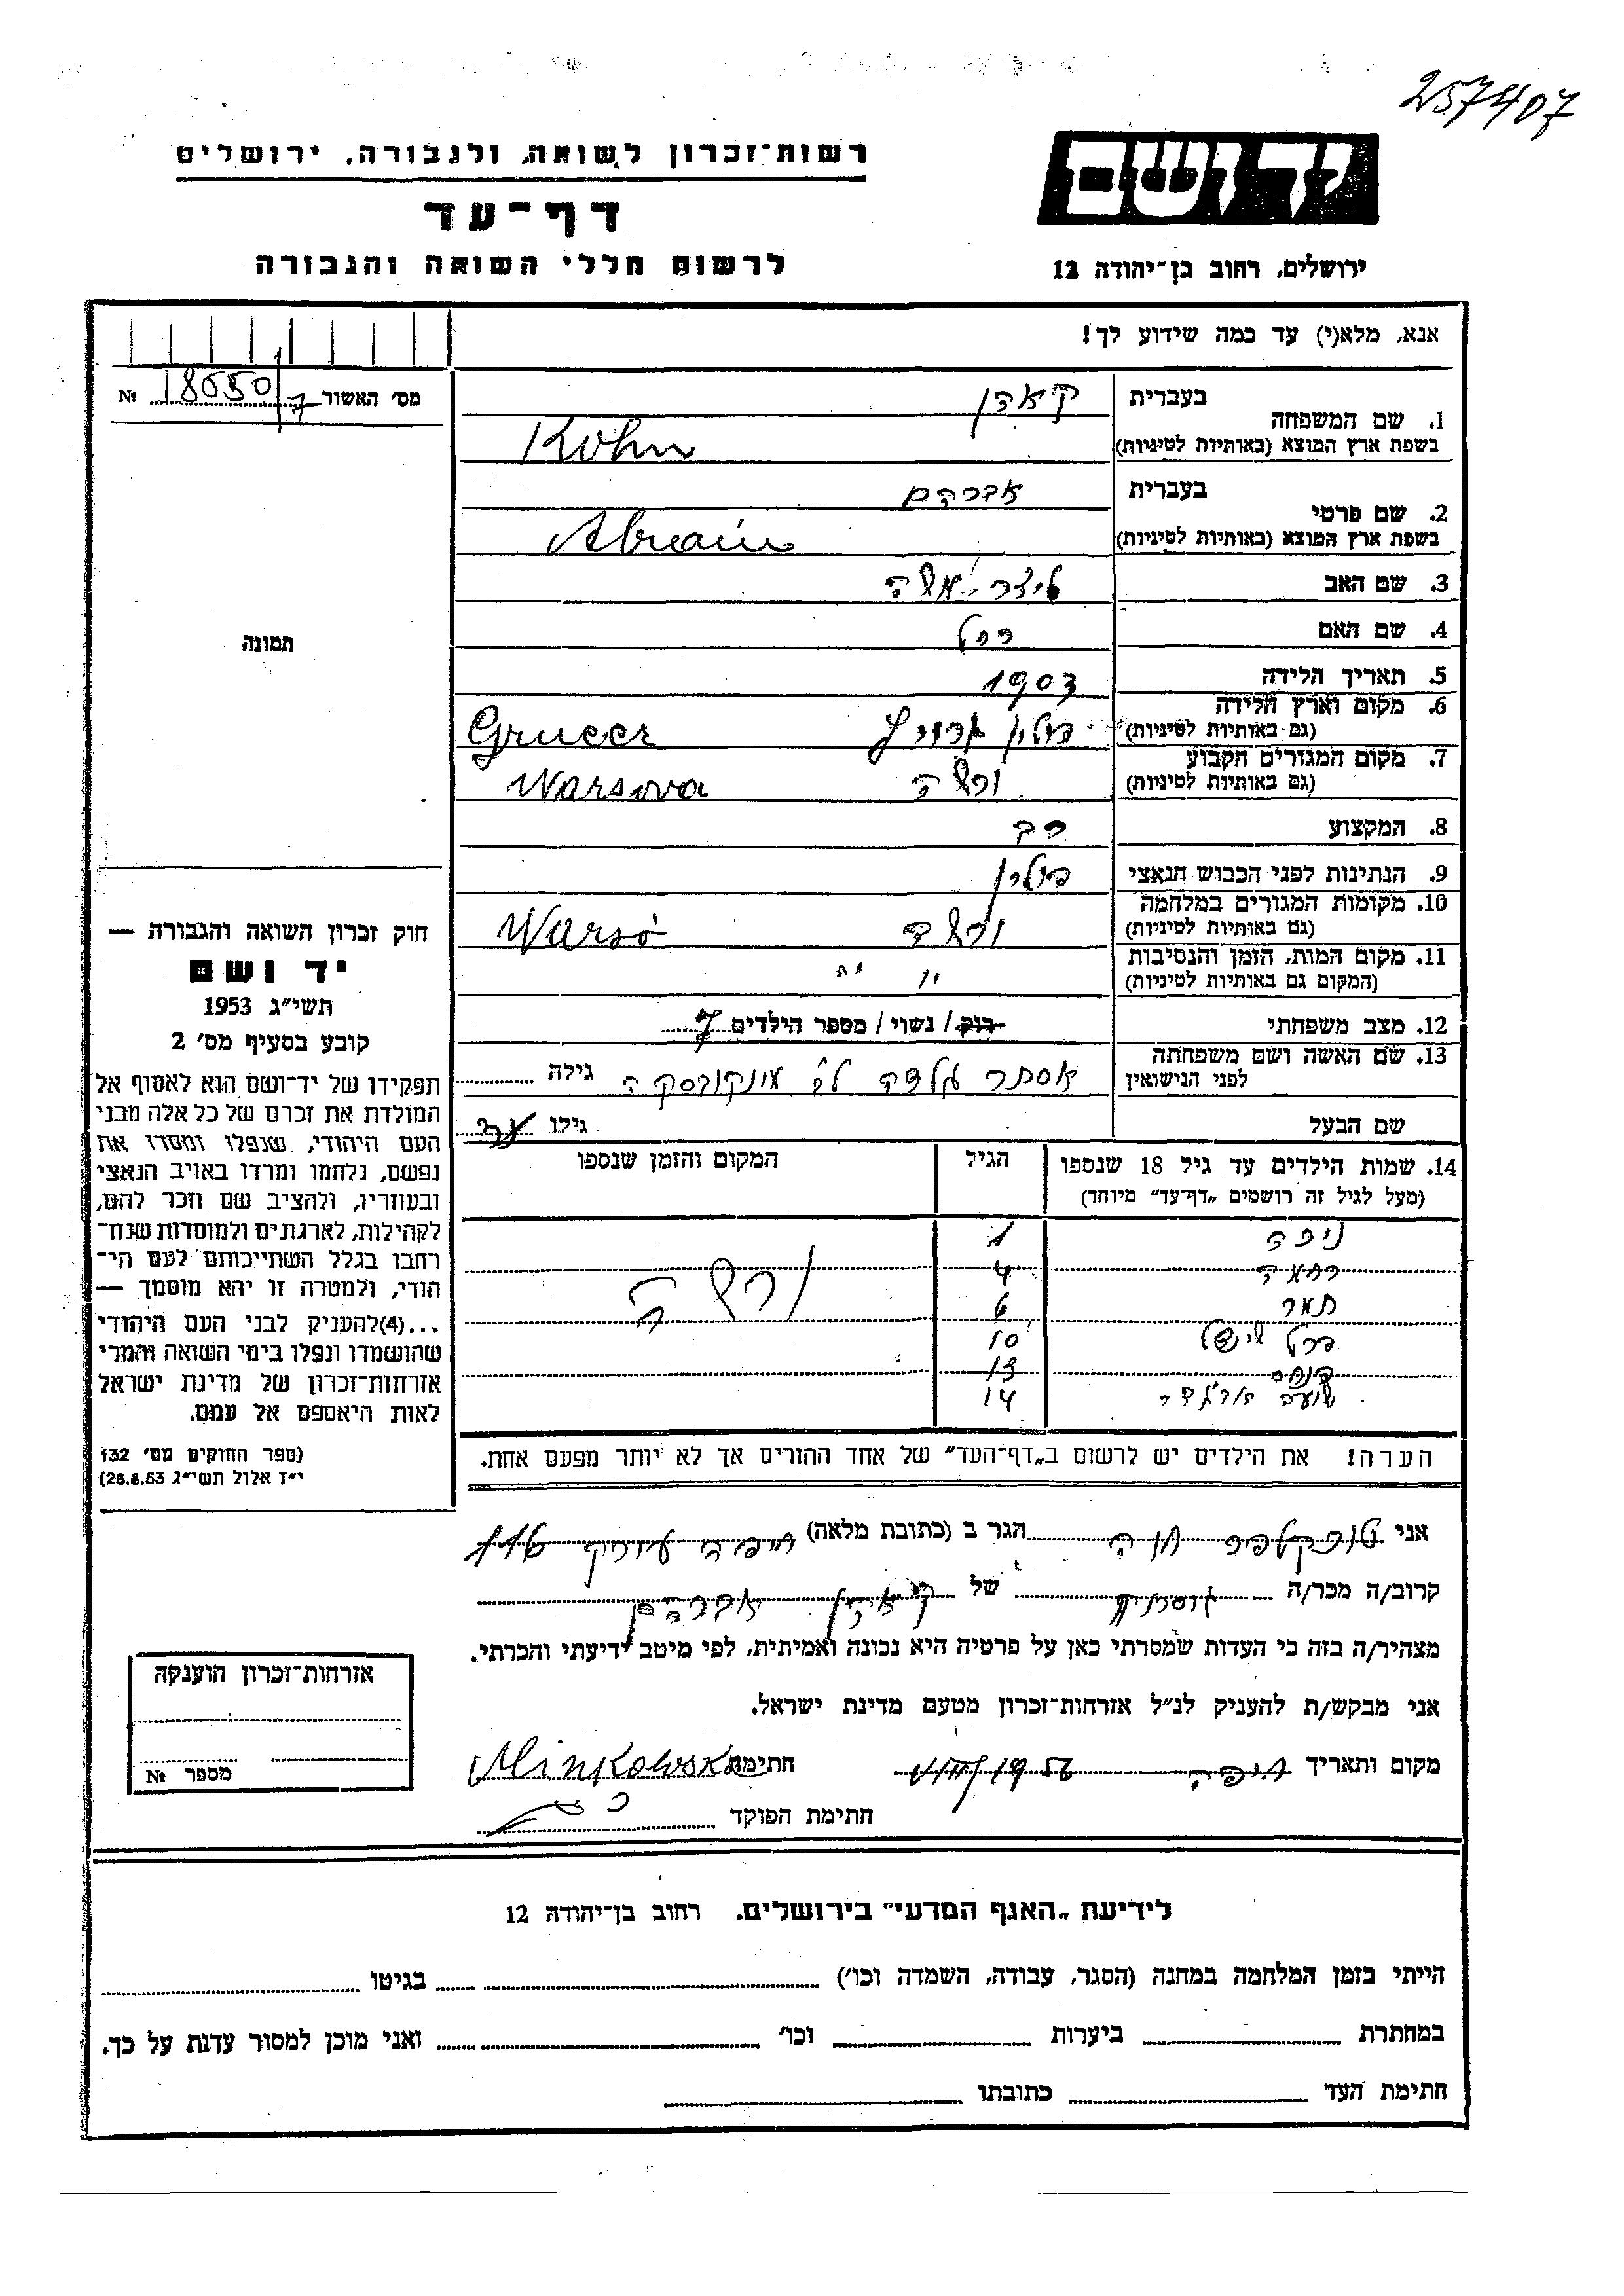 257407
יד ושם
ירושלים, רחוב בן־יהודה 12
רשות־זכרון לשואה ולגבורה, ירושלים
דף־עד
לרשום חללי השואה והגבורה
אנא, מלא(י) עד כמה שידוע לך!
מס׳ האשור № 18650/7
1. שם המשפחה
בעברית קאהן
בשפת ארץ המוצא (באותיות לטיניות) Kohn
2. שם פרטי
בעברית אברהם
בשפת ארץ המוצא (באותיות לטיניות) Abraim
3. שם האב
4. שם האם רחל
5. תאריך הלידה 1903
6. מקום וארץ הלידה
(גם באותיות לטיניות) פולין Grueer
7. מקום המגורים הקבוע
(גם באותיות לטיניות) ורשה Warsova
8. המקצוע רב
9. הנתינות לפני הכבוש הנאצי פולין
10. מקומות המגורים במלחמה
(גם באותיות לטיניות) ורשה Warsó
11. מקום המות, הזמן והנסיבות
(המקום גם באותיות לטיניות) " "
12. מצב משפחתי רוק / נשוי / מספר הילדים 7
13. שם האשה ושם משפחתה
לפני הנישואין אסתר לב׳ מינקובסקה גילה
שם הבעל גילו
14. שמות הילדים עד גיל 18 שנספו
(מעל לגיל זה רושמים „דף־עד” מיוחד)
הגיל
המקום והזמן שנספו
1
נחמה 4
תמר 6
ורשה
10
פנחס 13
14
הערה! את הילדים יש לרשום ב„דף־העד” של אחד ההורים אך לא יותר מפעם אחת.
תמונה
חוק זכרון השואה והגבורה —
יד ושם
תשי״ג 1953
קובע בסעיף מס׳ 2
תפקידו של יד־ושם הוא לאסוף אל
המולדת את זכרם של כל אלה מבני
העם היהודי, שנפלו ומסרו את
נפשם, נלחמו ומרדו באויב הנאצי
ובעוזריו, ולהציב שם וזכר להם,
לקהילות, לארגונים ולמוסדות שנח־
רבו בגלל השתייכותם לעם הי־
הודי, ולמטרה זו יהא מוסמך —
...(4)להעניק לבני העם היהודי
שהושמדו ונפלו בימי השואה והמרי
אזרחות־זכרון של מדינת ישראל
לאות היאספם אל עמם.
(ספר החוקים מס׳ 132
י״ז אלול תשי״ג 28.8.53)
אני חנה הגר ב (כתובת מלאה) חיפה
קרוב/ה מכר/ה גיסתו של קאהן אברהם
מצהיר/ה בזה כי העדות שמסרתי כאן על פרטיה היא נכונה ואמיתית, לפי מיטב ידיעתי והכרתי.
אני מבקש/ת להעניק לנ״ל אזרחות־זכרון מטעם מדינת ישראל.
מקום ותאריך חיפה 1956 חתימה Minkowska
חתימת הפוקד
אזרחות־זכרון הוענקה
מספר №
לידיעת „האגף המדעי” בירושלים. רחוב בן־יהודה 12
הייתי בזמן המלחמה במחנה (הסגר, עבודה, השמדה וכו׳) בגיטו
במחתרת ביערות וכו׳ ואני מוכן למסור עדות על כך.
חתימת העד כתובתו